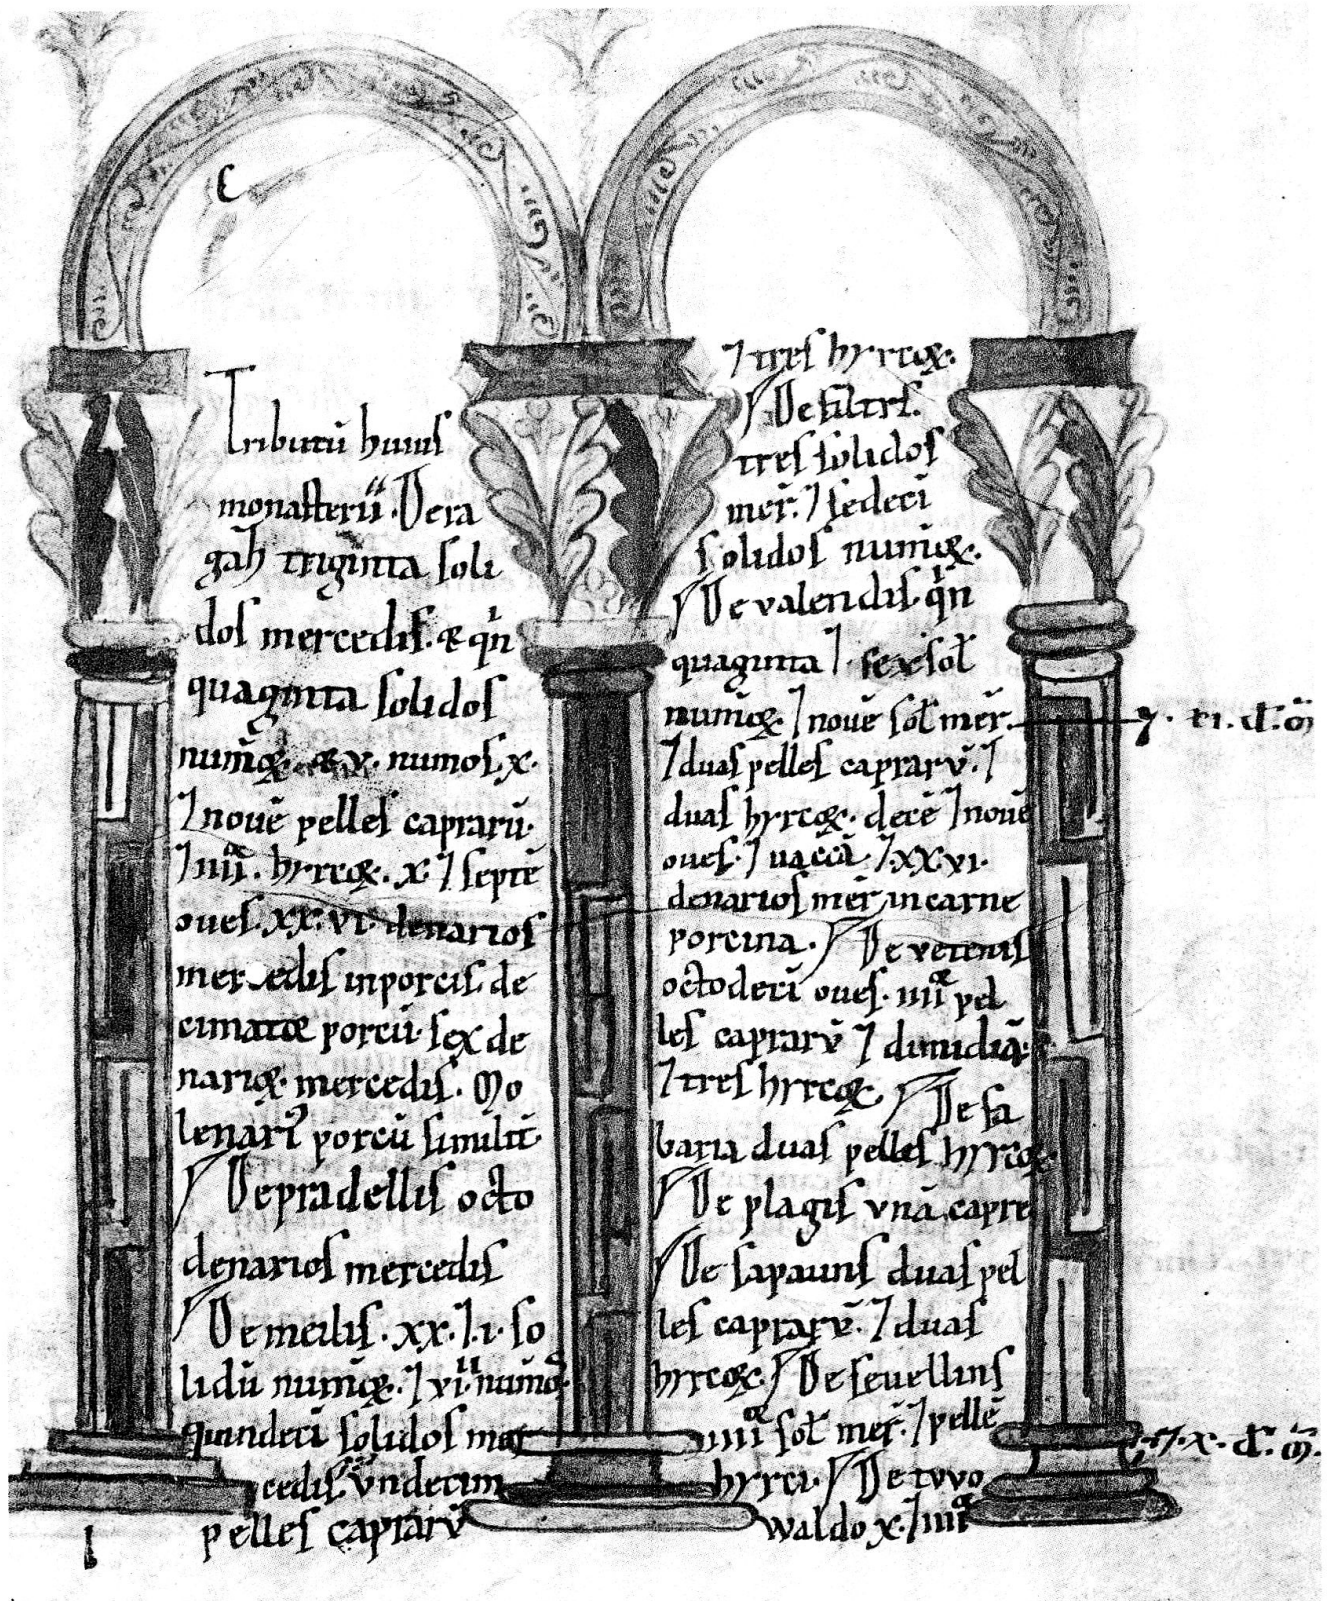 Tributū huius
monasterii. De ra
gaħ triginta soli
dos mercedis. & qͥn
quaginta solidos
numōꝝ. & v. numos x.
⁊ novē pelles caprarū.
⁊ iiiiᵒʳ. hyrcoꝝ. x. ⁊ septē
oves. xx. vi. denarios
mercedis in porcis. de
cimatoe porcū. sex de
narioꝝ mercedis. Mo
lenariꝰ porcū similit̄.
De pradellis octo
denarios mercedis
De meilis. xx. ⁊. i. so
lidū numōꝝ. ⁊ vii numōꝝ
quindecī solidos mer
cedis. Undecim
pelles caprarū
⁊ tres hyrcoꝝ.
De filtris.
tres solidos
mer̄. ⁊ sedeci
solidos numōꝝ.
De valendis. qͥn
quaginta ⁊. sex soł
numōꝝ. ⁊ novē soł mer̄.
⁊ duas pelles caprarū. ⁊
duas hyrcoꝝ. decē ⁊ novē
oves. ⁊ vaccā. ⁊. xx vi.
denarios mer̄ in carne
porcina. De vetenis
octodecī oves. iiiiᵒʳ pel
les caprarū ⁊ dimidiā.
⁊ tres hyrcoꝝ. De fa
baria duas pelles hyrcoꝝ
De plagis unā capre
De sapaunis duas pel
les caprarū. ⁊ duas
hyrcoꝝ. De sevellins
iiiiᵒʳ soł mer̄. ⁊ pellē
hyrci. De tvvo
waldo x. ⁊ iiiiᵒʳ